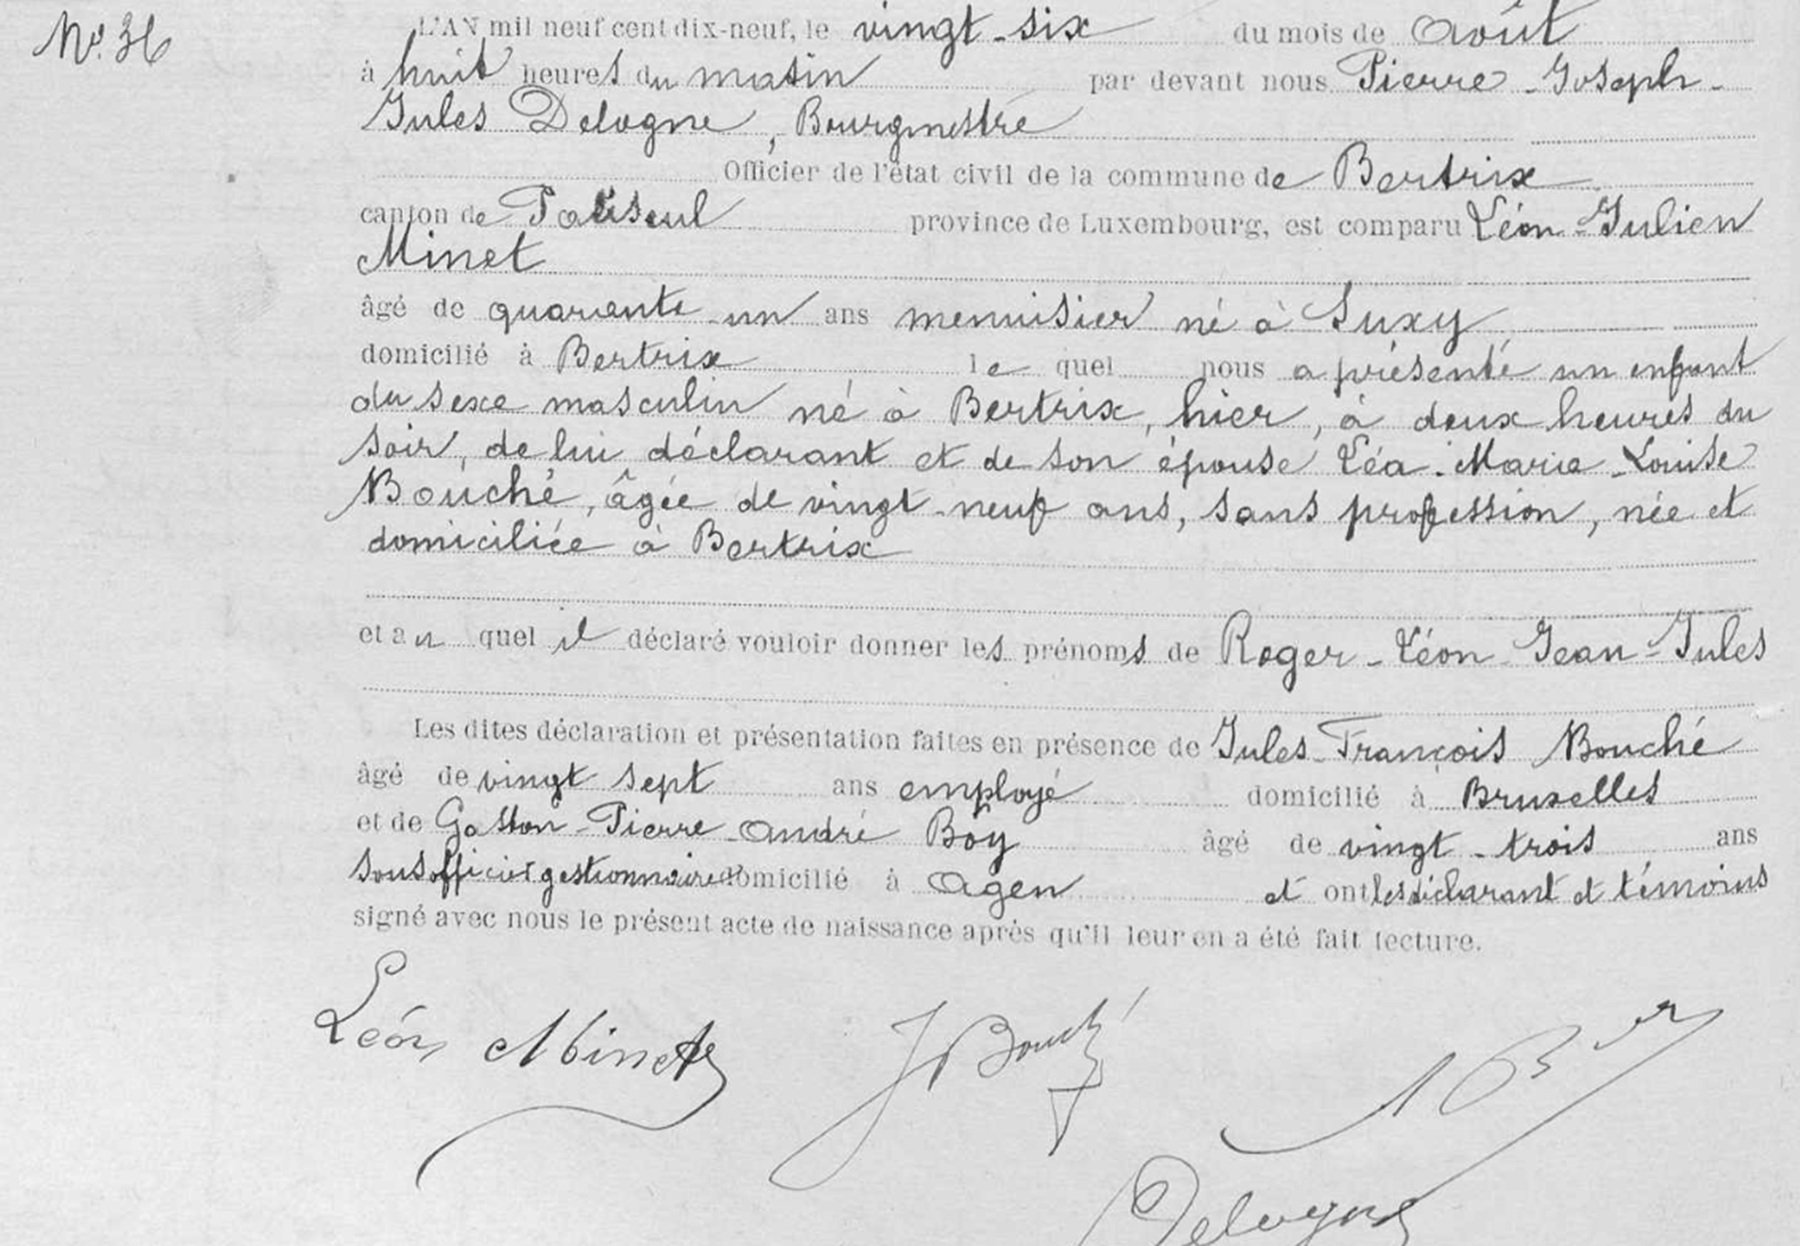 No. 36
L'AN mil neuf cent dix-neuf, le vingt-six du mois de Août
à huit heures du matin par devant nous Pierre-Joseph-
Jules Delogne, Bourgmestre
Officier de l'état civil de la commune de Bertrix
canton de Paliseul province de Luxembourg, est comparu Léon-Julien
Minet
âgé de quarante-un ans menuisier né à Suxy
domicilié à Bertrix le quel nous a présenté un enfant
du sexe masculin né à Bertrix, hier, à deux heures du
soir, de lui déclarant et de son épouse Léa-Marie-Louise
Bouché, âgée de vingt-neuf ans, sans profession, née et
domiciliée à Bertrix
et au quel il déclaré vouloir donner les prénoms de Roger-Léon-Jean-Jules
Les dites déclaration et présentation faites en présence de Jules-François Bouché
âgé de vingt sept ans employé domicilié à Bruxelles
et de Gaston-Pierre-André Boy âgé de vingt-trois ans
sous officier gestionnaire domicilié à Agen et ont les déclarant et témoins
signé avec nous le présent acte de naissance après qu'il leur en a été fait lecture.
Léon Minet J Bouché
Delogne